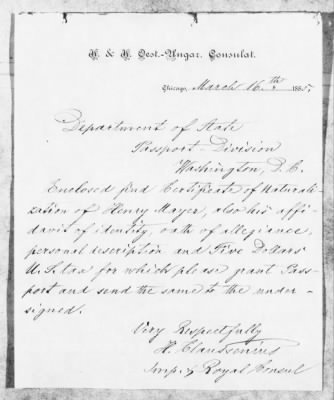 K. & K. Oest.-Ungar. Consulat.
Chicago, March 16th 1885.
Department of State
Passport-Division
Washington, D.C.
Enclosed find Certificate of Naturali-
zation of Henry Mayer, also his affi-
davit of identity, oath of allegiance,
personal description and Five Dollars
U.S. tax for which please grant Pass-
port and send the same to the under-
signed.
Very Respectfully
H. Claussenius
Imp. & Royal Consul